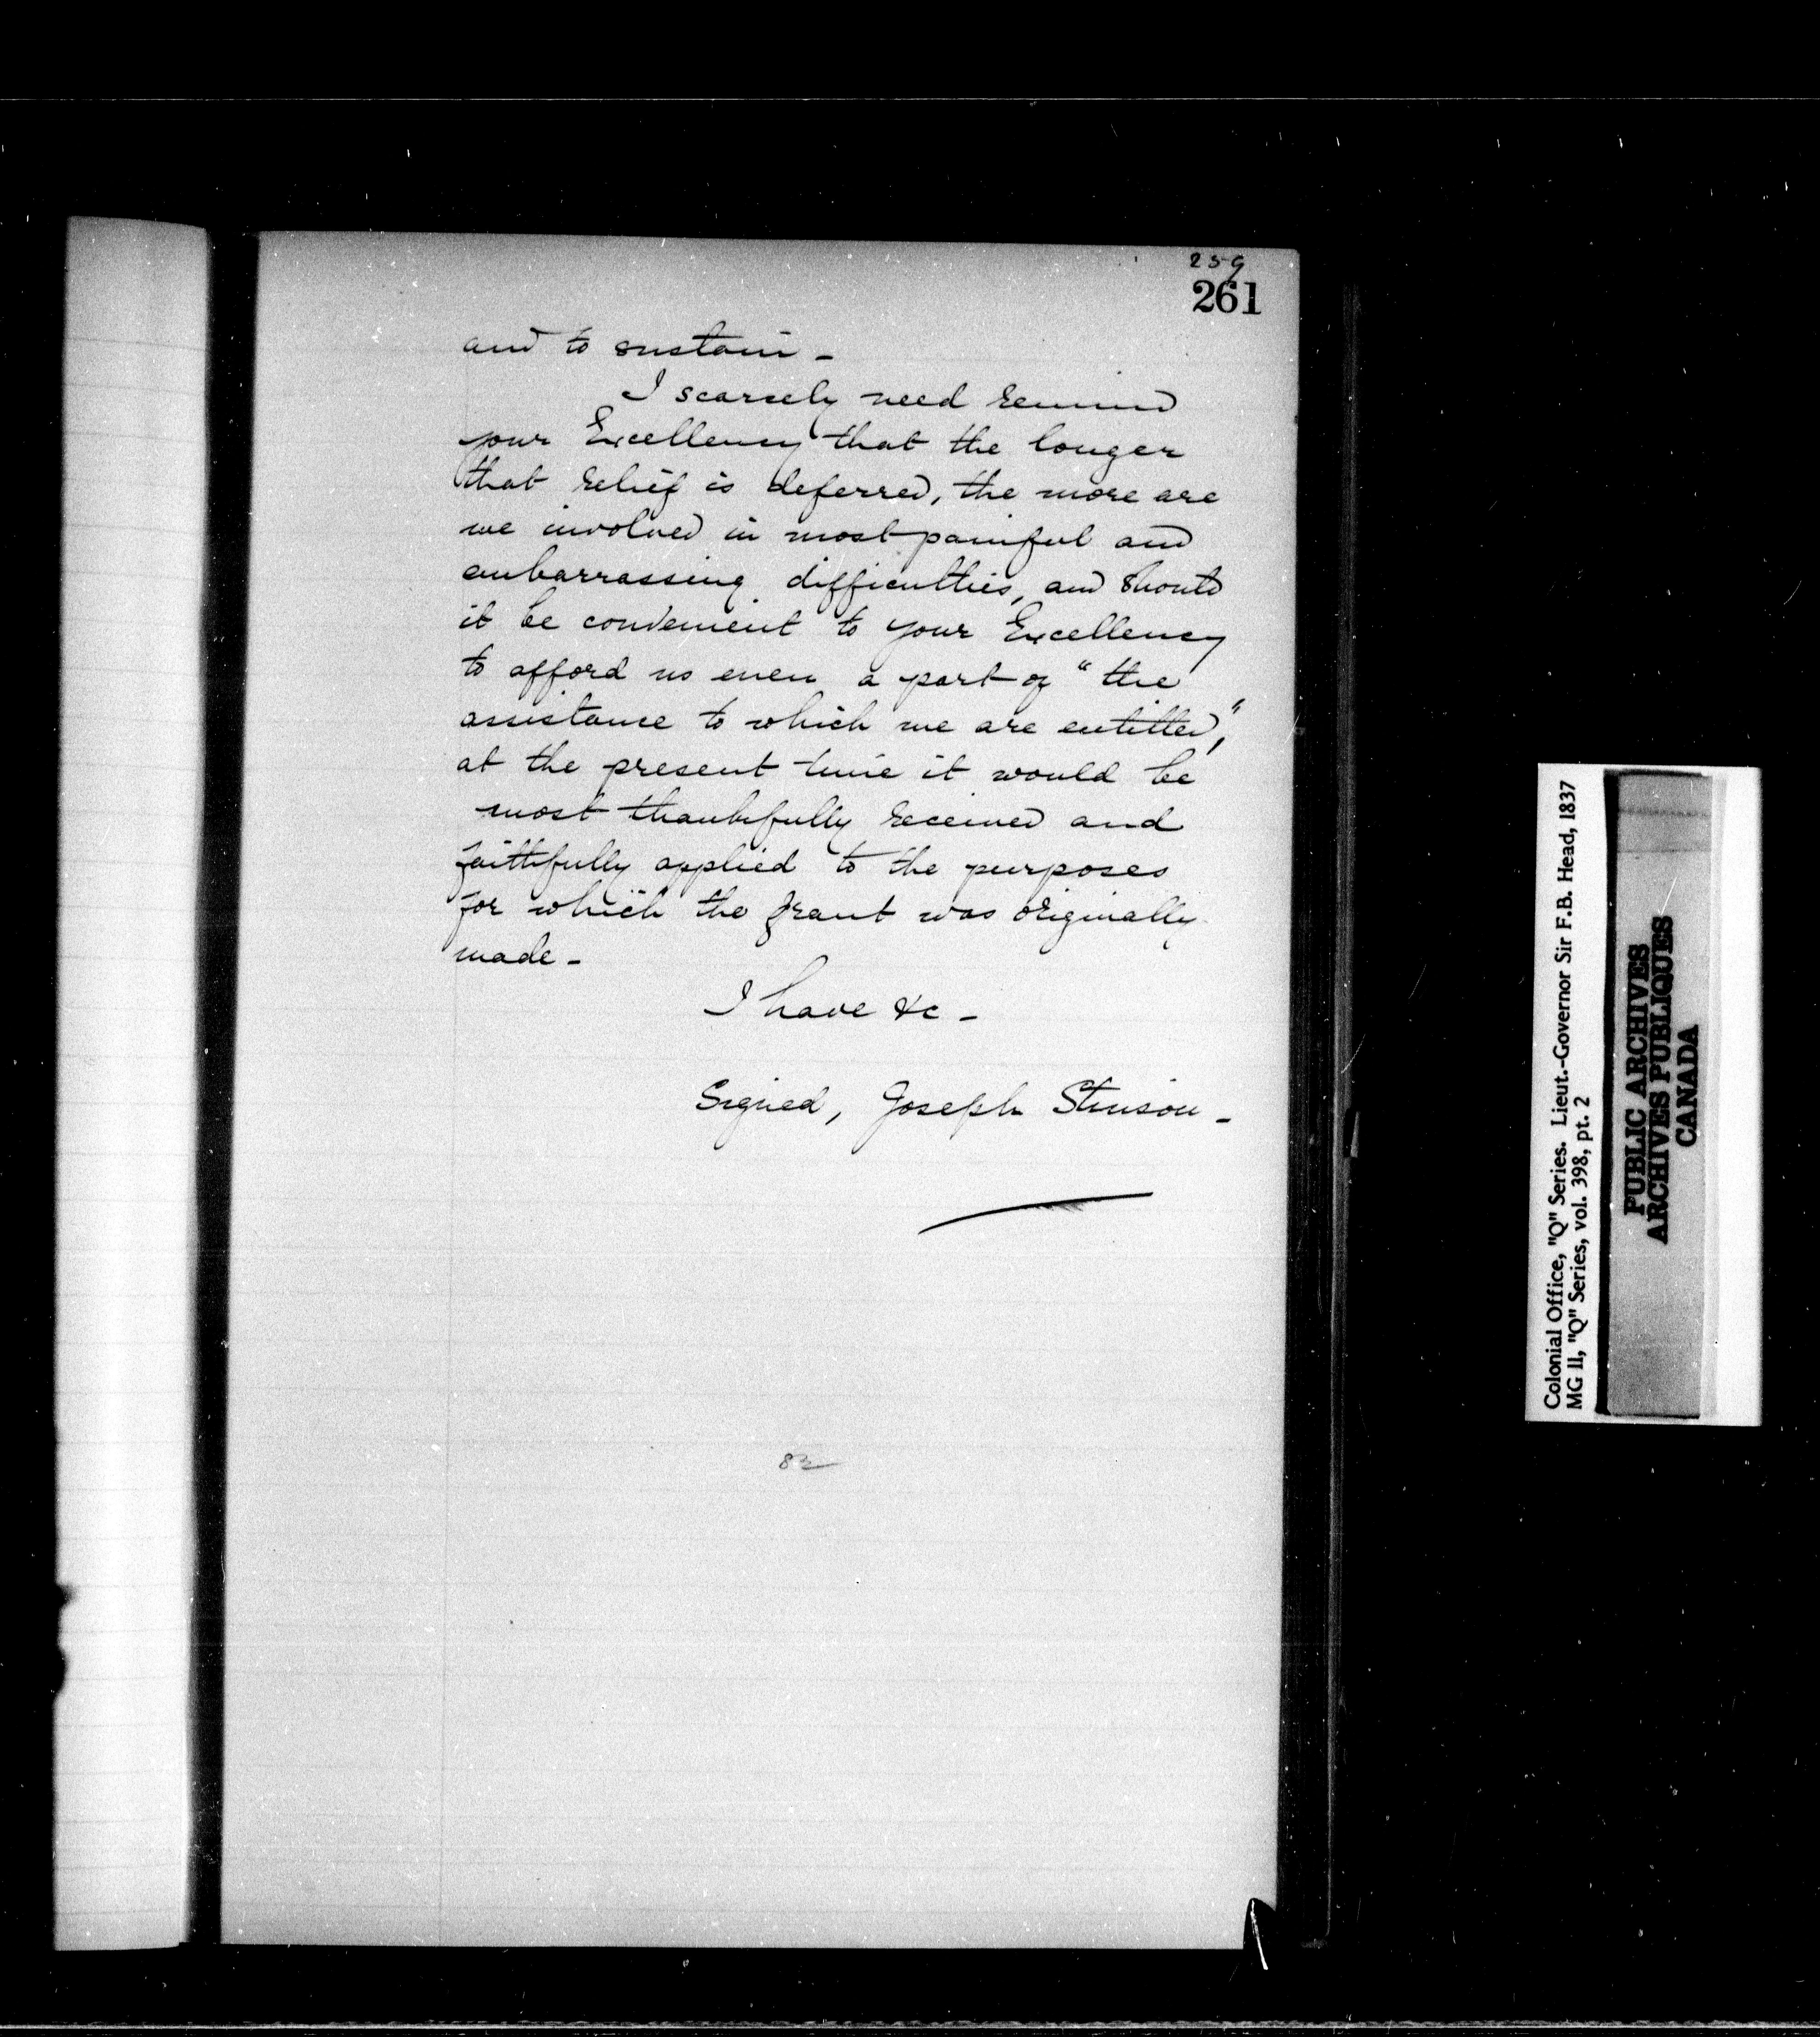 259
261
and to sustain -
I scarcely need remind
your Excellency that the longer
that relief is deferred, the more are
we involved in most painful and
embarrassing difficulties, and should
it be convenient to your Excellency
to afford us even a part of "the
assistance to which we are entitled,"
at the present time it would be
most thankfully received and
faithfully applied to the purposes
for which the grant was originally
made -
I have &c -
Signed, Joseph Stinson -
Colonial Office, "Q" Series. Lieut.-Governor Sir F.B. Head, 1837
MG 11, "Q" Series, vol. 398, pt. 2
PUBLIC ARCHIVES
ARCHIVES PUBLIQUES
CANADA